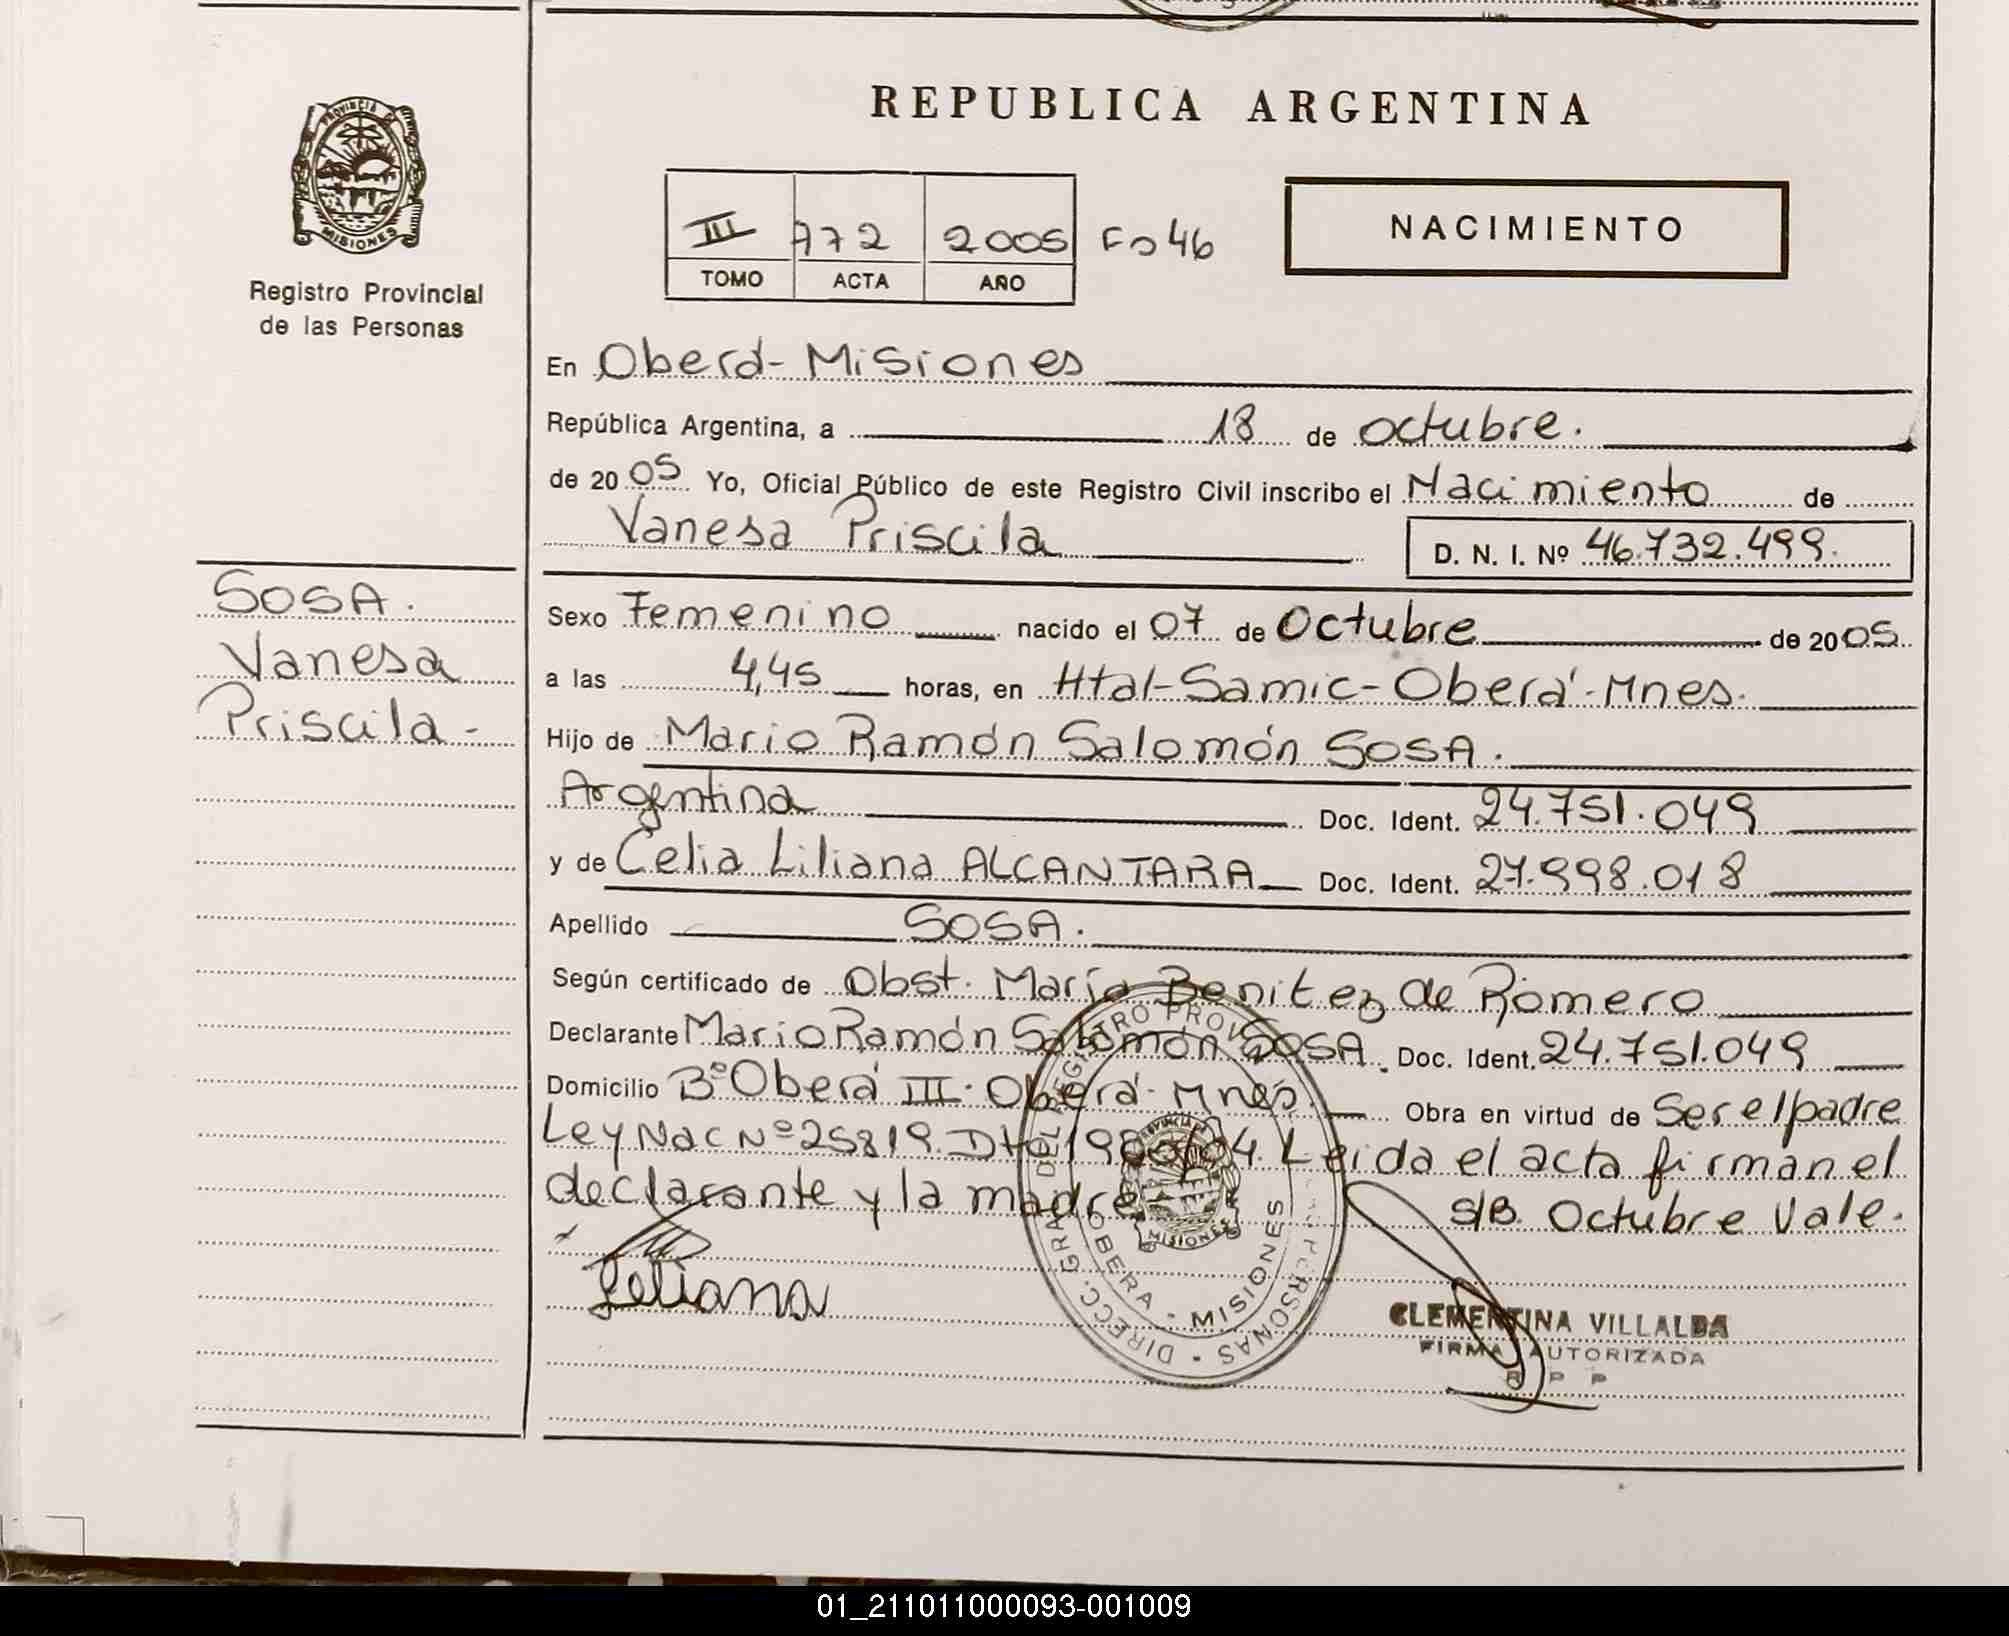 REPUBLICA ARGENTINA
PROVINCIA DE
MISIONES
Registro Provincial
de las Personas
III 772 2005 Fo 46
TOMO ACTA AÑO
NACIMIENTO
En Oberá-Misiones
República Argentina, a 18 de octubre.
de 2005 Yo, Oficial Público de este Registro Civil inscribo el Nacimiento de
Vanesa Priscila D. N. I. Nº 46.732.499.
SOSA.
Vanesa
Priscila-
Sexo Femenino nacido el 07 de Octubre de 2005
a las 4,45 horas, en Htal-Samic-Oberá-Mnes.
Hijo de Mario Ramón Salomón SOSA.
Argentina Doc. Ident. 24.751.049
y de Celia Liliana ALCANTARA Doc. Ident. 27.998.018
Apellido SOSA.
Según certificado de Obst. María Benitez de Romero
Declarante Mario Ramón Salomón SOSA Doc. Ident. 24.751.049
Domicilio Bº Oberá III. Oberá-Mnes. Obra en virtud de Ser el padre
Ley Nac Nº 25819. Dto 1980/04. Leida el acta firman el
declarante y la madre
S/B. Octubre Vale.
Liliana
DIRECC. GRAL DEL REGISTRO PROV. PERSONAS
OBERA - MISIONES
MISIONES
CLEMENTINA VILLALBA
FIRMA AUTORIZADA
R P P
01_211011000093-001009